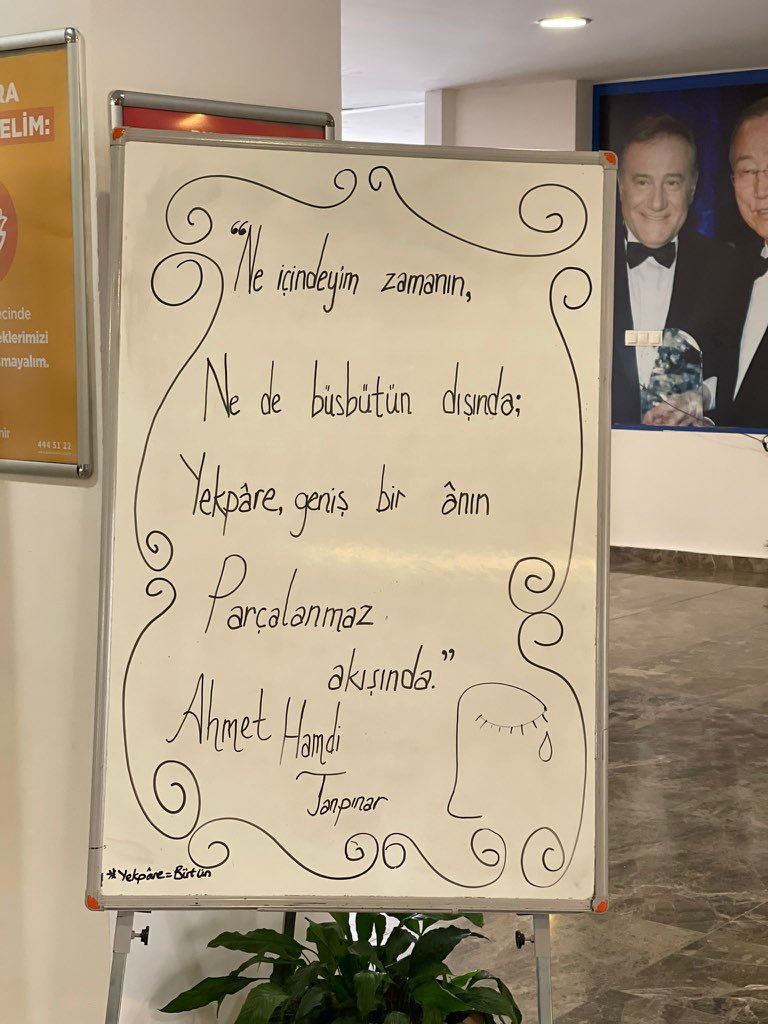 RA
ELİM:
ecinde
eklerimizi
mayalım.
nir
444 51 22
“Ne içindeyim zamanın,
Ne de büsbütün dışında;
Yekpâre, geniş bir ânın
Parçalanmaz
akışında.”
Ahmet Hamdi
Tanpınar
*Yekpâre = Bürtün